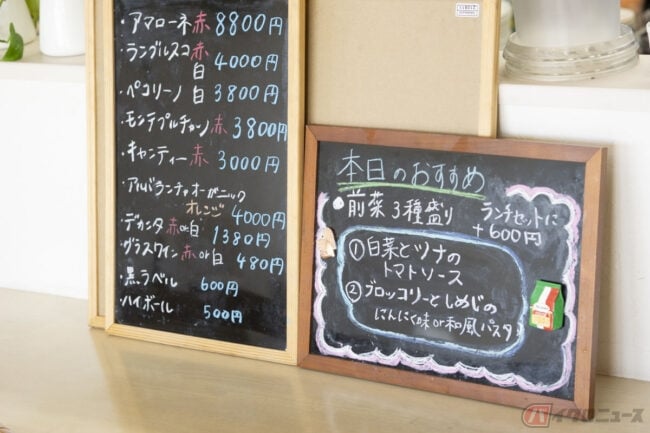 ・アマローネ赤 8800円
・ランブルスコ赤
白 4000円
・ペコリーノ 白 3800円
・モンテプルチャーノ赤 3800円
・キャンティー赤 3000円
・アルバランチャオーガニック
オレンジ 4000円
・デカンタ 赤or白 1380円
・グラスワイン赤or白 480円
・黒ラベル 600円
・ハイボール 500円
本日のおすすめ
・前菜3種盛り
ランチセットに
+600円
①白菜とツナの
トマトソース
②ブロッコリーとしめじの
にんにく味or和風パスタ
バイクのニュース